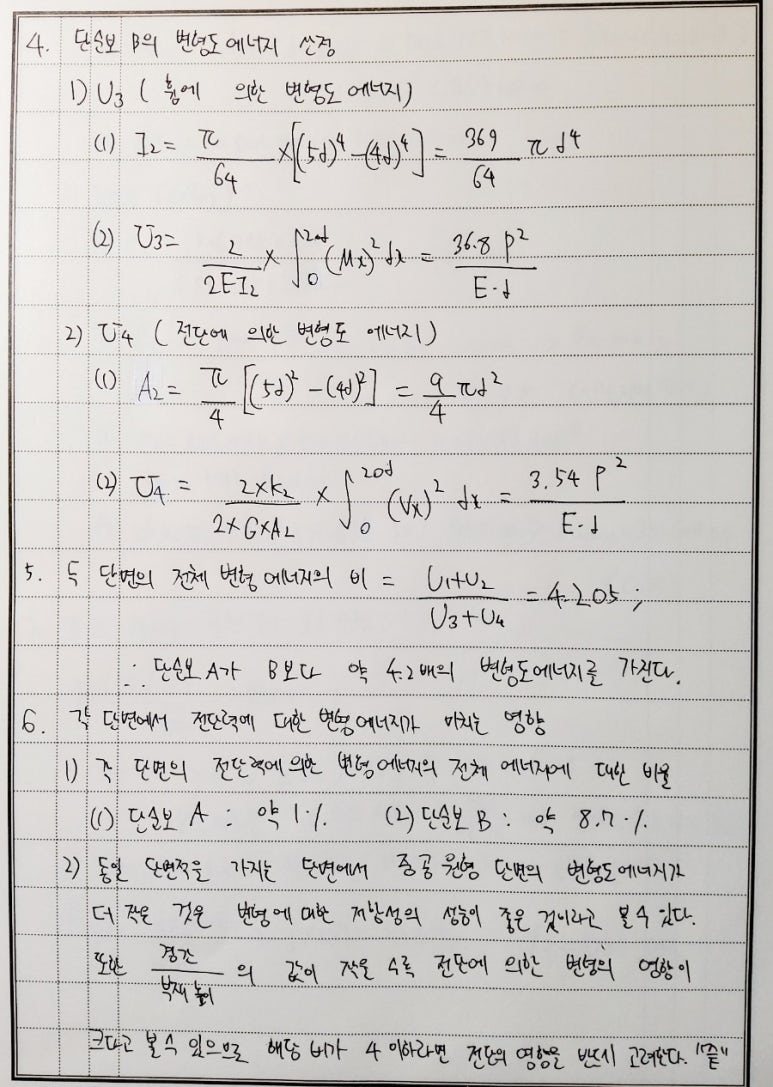 4. 단순보 B의 변형도에너지 산정
1) U₃ ( 휨에 의한 변형도 에너지)
(1) I₂ = π/64 ×[(5d)⁴-(4d)⁴] = 369/64 πd⁴
(2) U₃= 2/2EI₂ × ∫₀²⁰ᵈ (Mx)² dx = 36.8 P²/E·d
2) U₄ ( 전단에 의한 변형도 에너지)
(1) A₂ = π/4 [(5d)² - (4d)²] = 9/4 πd²
(2) U₄ = 2×k₂/2×G×A₂ × ∫₀²⁰ᵈ (Vx)² dx = 3.54 P²/E·d
5. 두 단면의 전체 변형에너지의 비 = U₁+U₂/U₃+U₄ = 4.205 ;
∴ 단순보 A가 B보다 약 4.2배의 변형도에너지를 가진다.
6. 각 단면에서 전단력에 대한 변형에너지가 미치는 영향
1) 각 단면의 전단력에 의한 변형에너지의 전체 에너지에 대한 비율
(1) 단순보 A : 약 1% (2) 단순보 B : 약 8.7%
2) 동일 단면적을 가지는 단면에서 중공 원형 단면의 변형도에너지가
더 작은 것은 변형에 대한 저항성의 성능이 좋은 것이라고 볼 수 있다.
또한 경간/부재 높이 의 값이 작을 수록 전단에 의한 변형의 영향이
크다고 볼 수 있으므로 해당 비가 4 이하라면 전단의 영향을 반드시 고려한다. "끝"